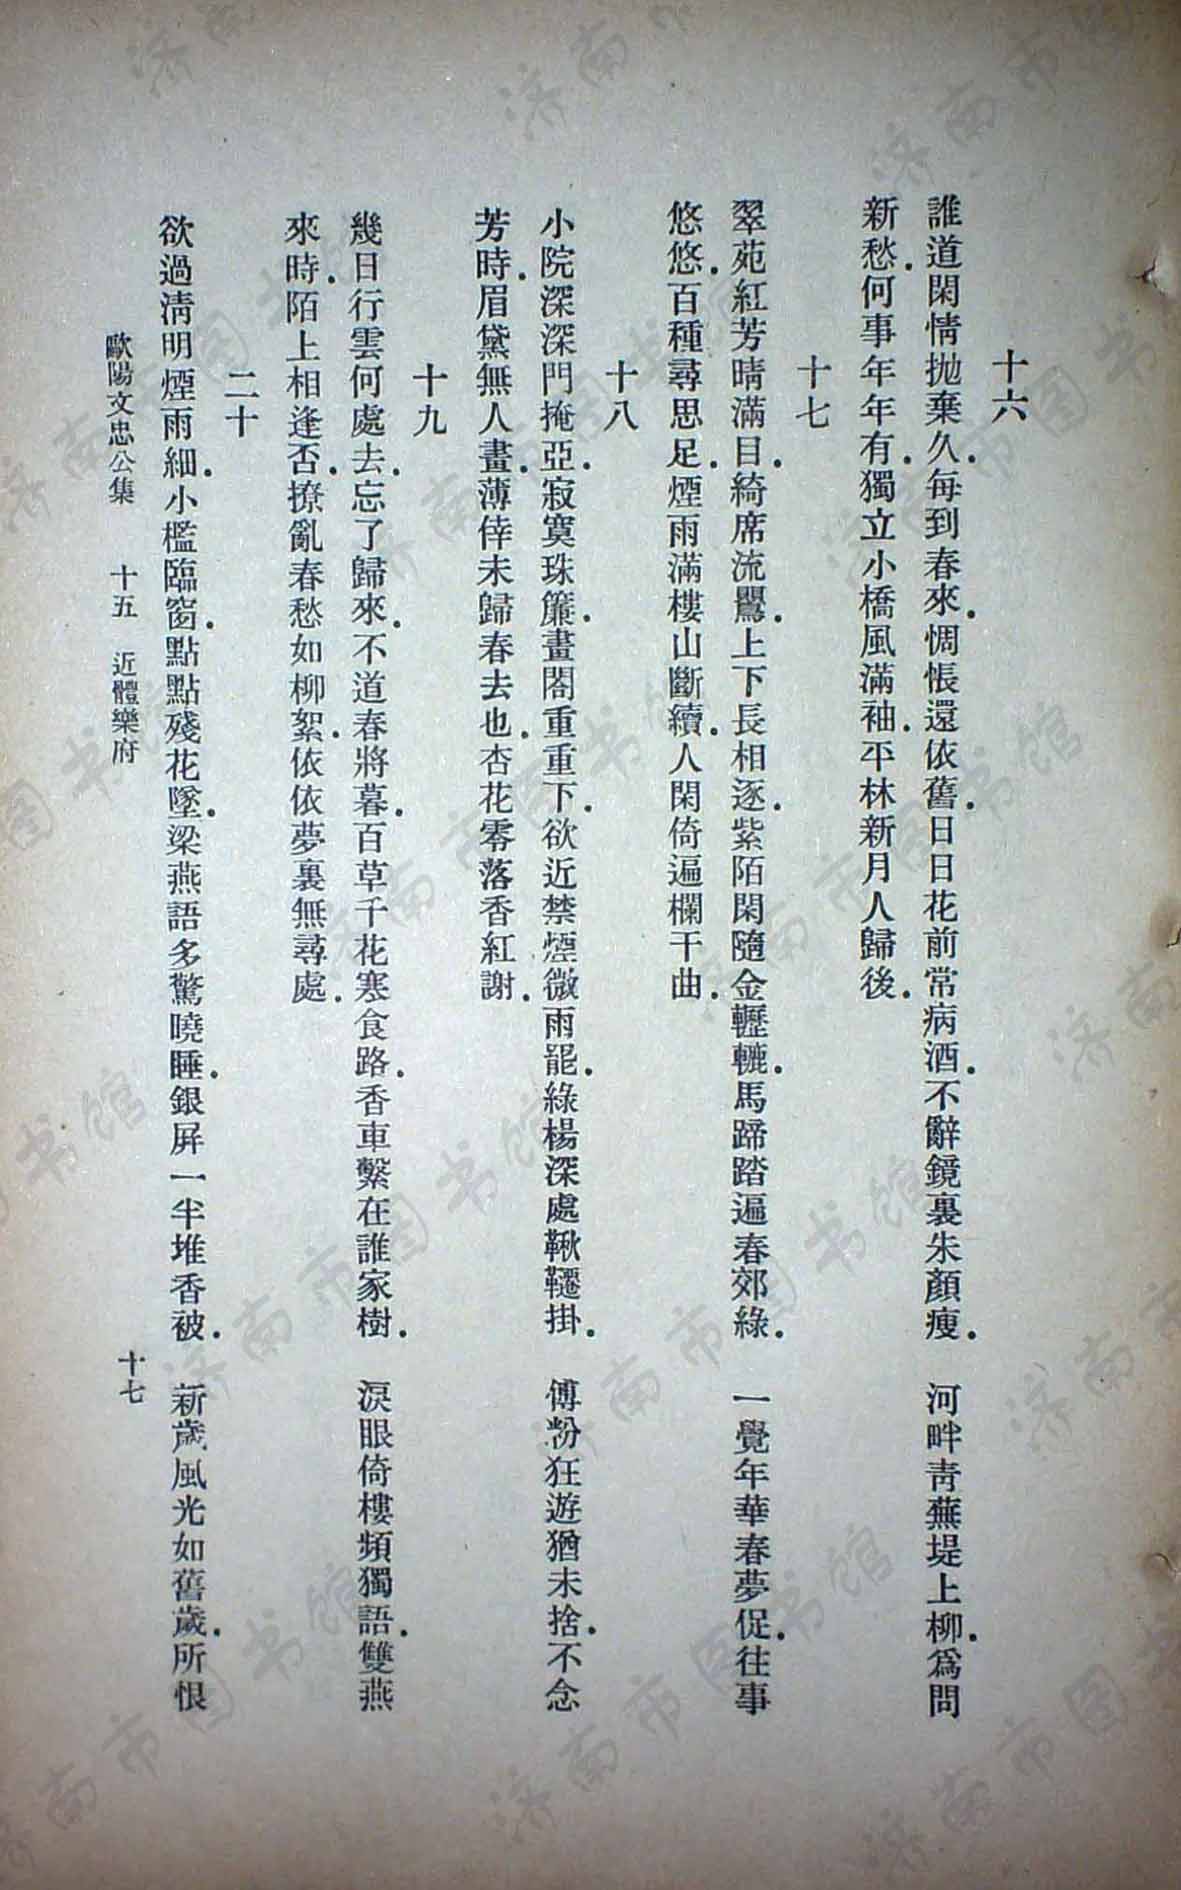 十六
誰道閑情抛棄久．每到春來．惆悵還依舊．日日花前常病酒．不辭鏡裏朱顏瘦．　河畔靑蕪堤上柳．爲問
新愁．何事年年有．獨立小橋風滿袖．平林新月人歸後．
十七
翠苑紅芳晴滿目．綺席流鸎．上下長相逐．紫陌閑隨金轣轆．馬蹄踏遍春郊綠．　一覺年華春夢促．往事
悠悠．百種尋思足．煙雨滿樓山斷續．人閑倚遍欄干曲．
十八
小院深深門掩亞．寂寞珠簾．畫閣重重下．欲近禁煙微雨罷．綠楊深處鞦韆掛．　傅粉狂遊猶未捨．不念
芳時．眉黛無人畫．薄倖未歸春去也．杏花零落香紅謝．
十九
幾日行雲何處去．忘了歸來．不道春將暮．百草千花寒食路．香車繫在誰家樹．　淚眼倚樓頻獨語．雙燕
來時．陌上相逢否．撩亂春愁如柳絮．依依夢裏無尋處．
二十
欲過淸明煙雨細．小檻臨窗．點點殘花墜．梁燕語多驚曉睡．銀屛一半堆香被．　新歲風光如舊歲．所恨
歐陽文忠公集　十五　近體樂府　十七
济南市图书馆